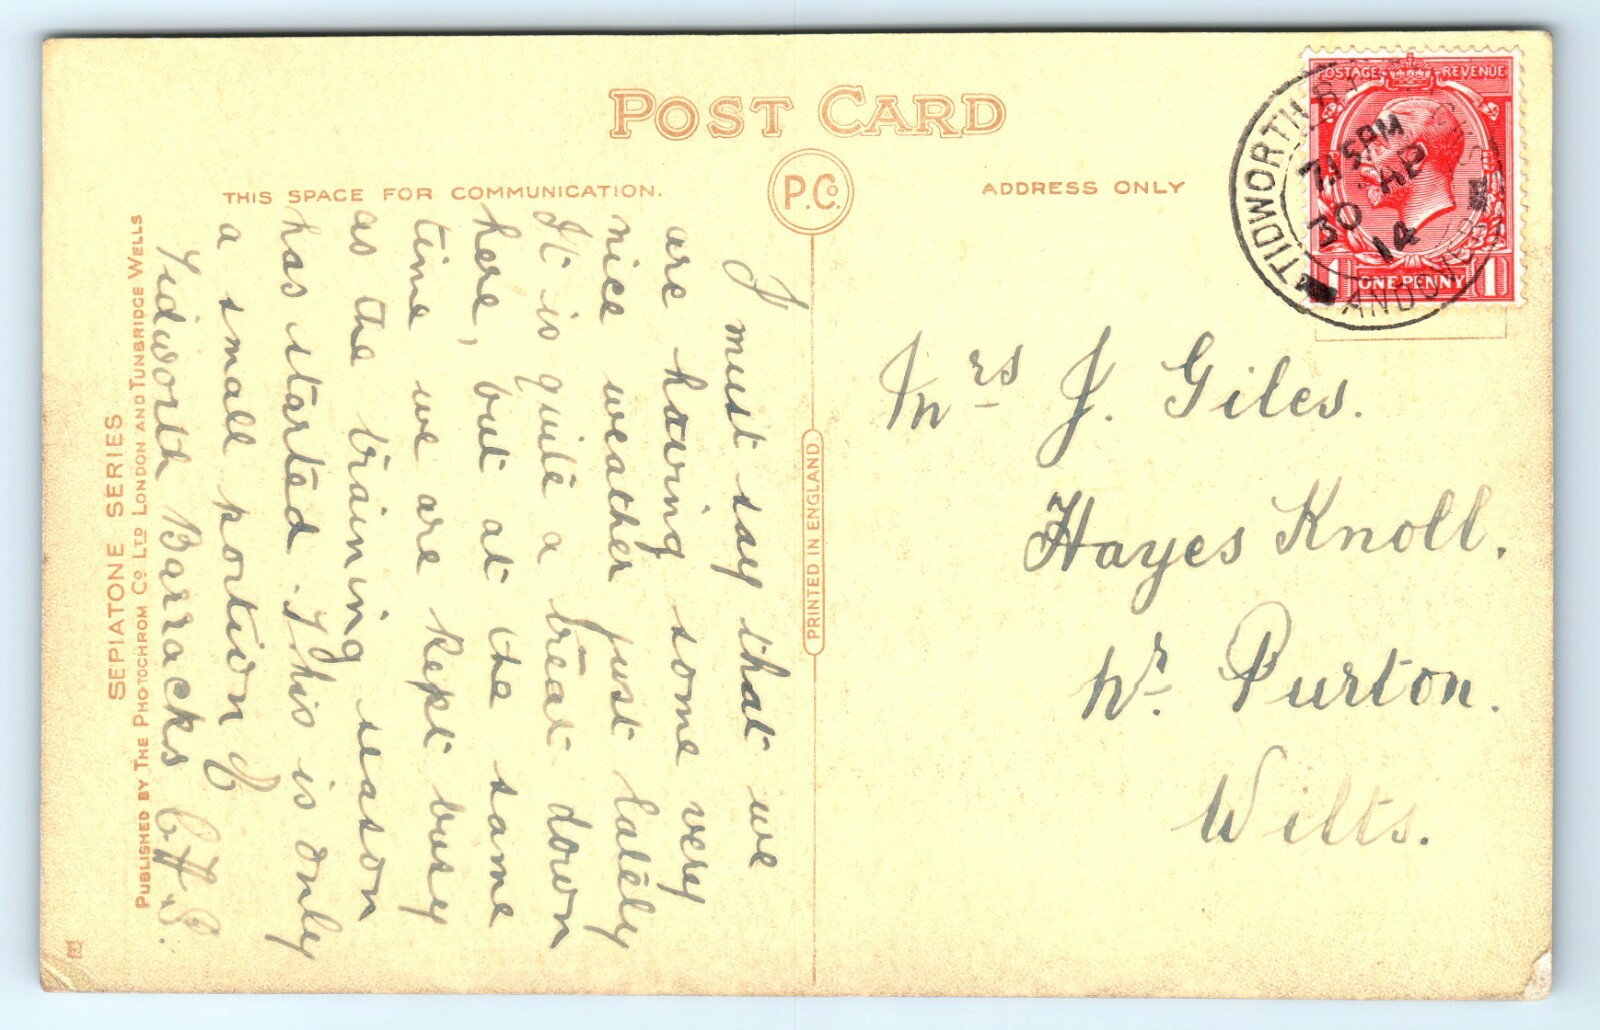 POST CARD
THIS SPACE FOR COMMUNICATION.
P.Co.
ADDRESS ONLY
POSTAGE REVENUE
ONE PENNY
1 1
TIDWORTH
ANDOVER
7.15 PM
30 AP
14
I must say that we
are having some very
nice weather just lately
It is quite a treat down
here, but at the same
time we are kept busy
as the training season
has started. This is only
a small portion of
Tidworth Barracks
Mrs J. Giles.
Hayes Knoll.
Nr. Purton.
Wilts.
PRINTED IN ENGLAND
SEPIATONE SERIES
PUBLISHED BY THE PHOTOCHROM CO LTD LONDON AND TUNBRIDGE WELLS